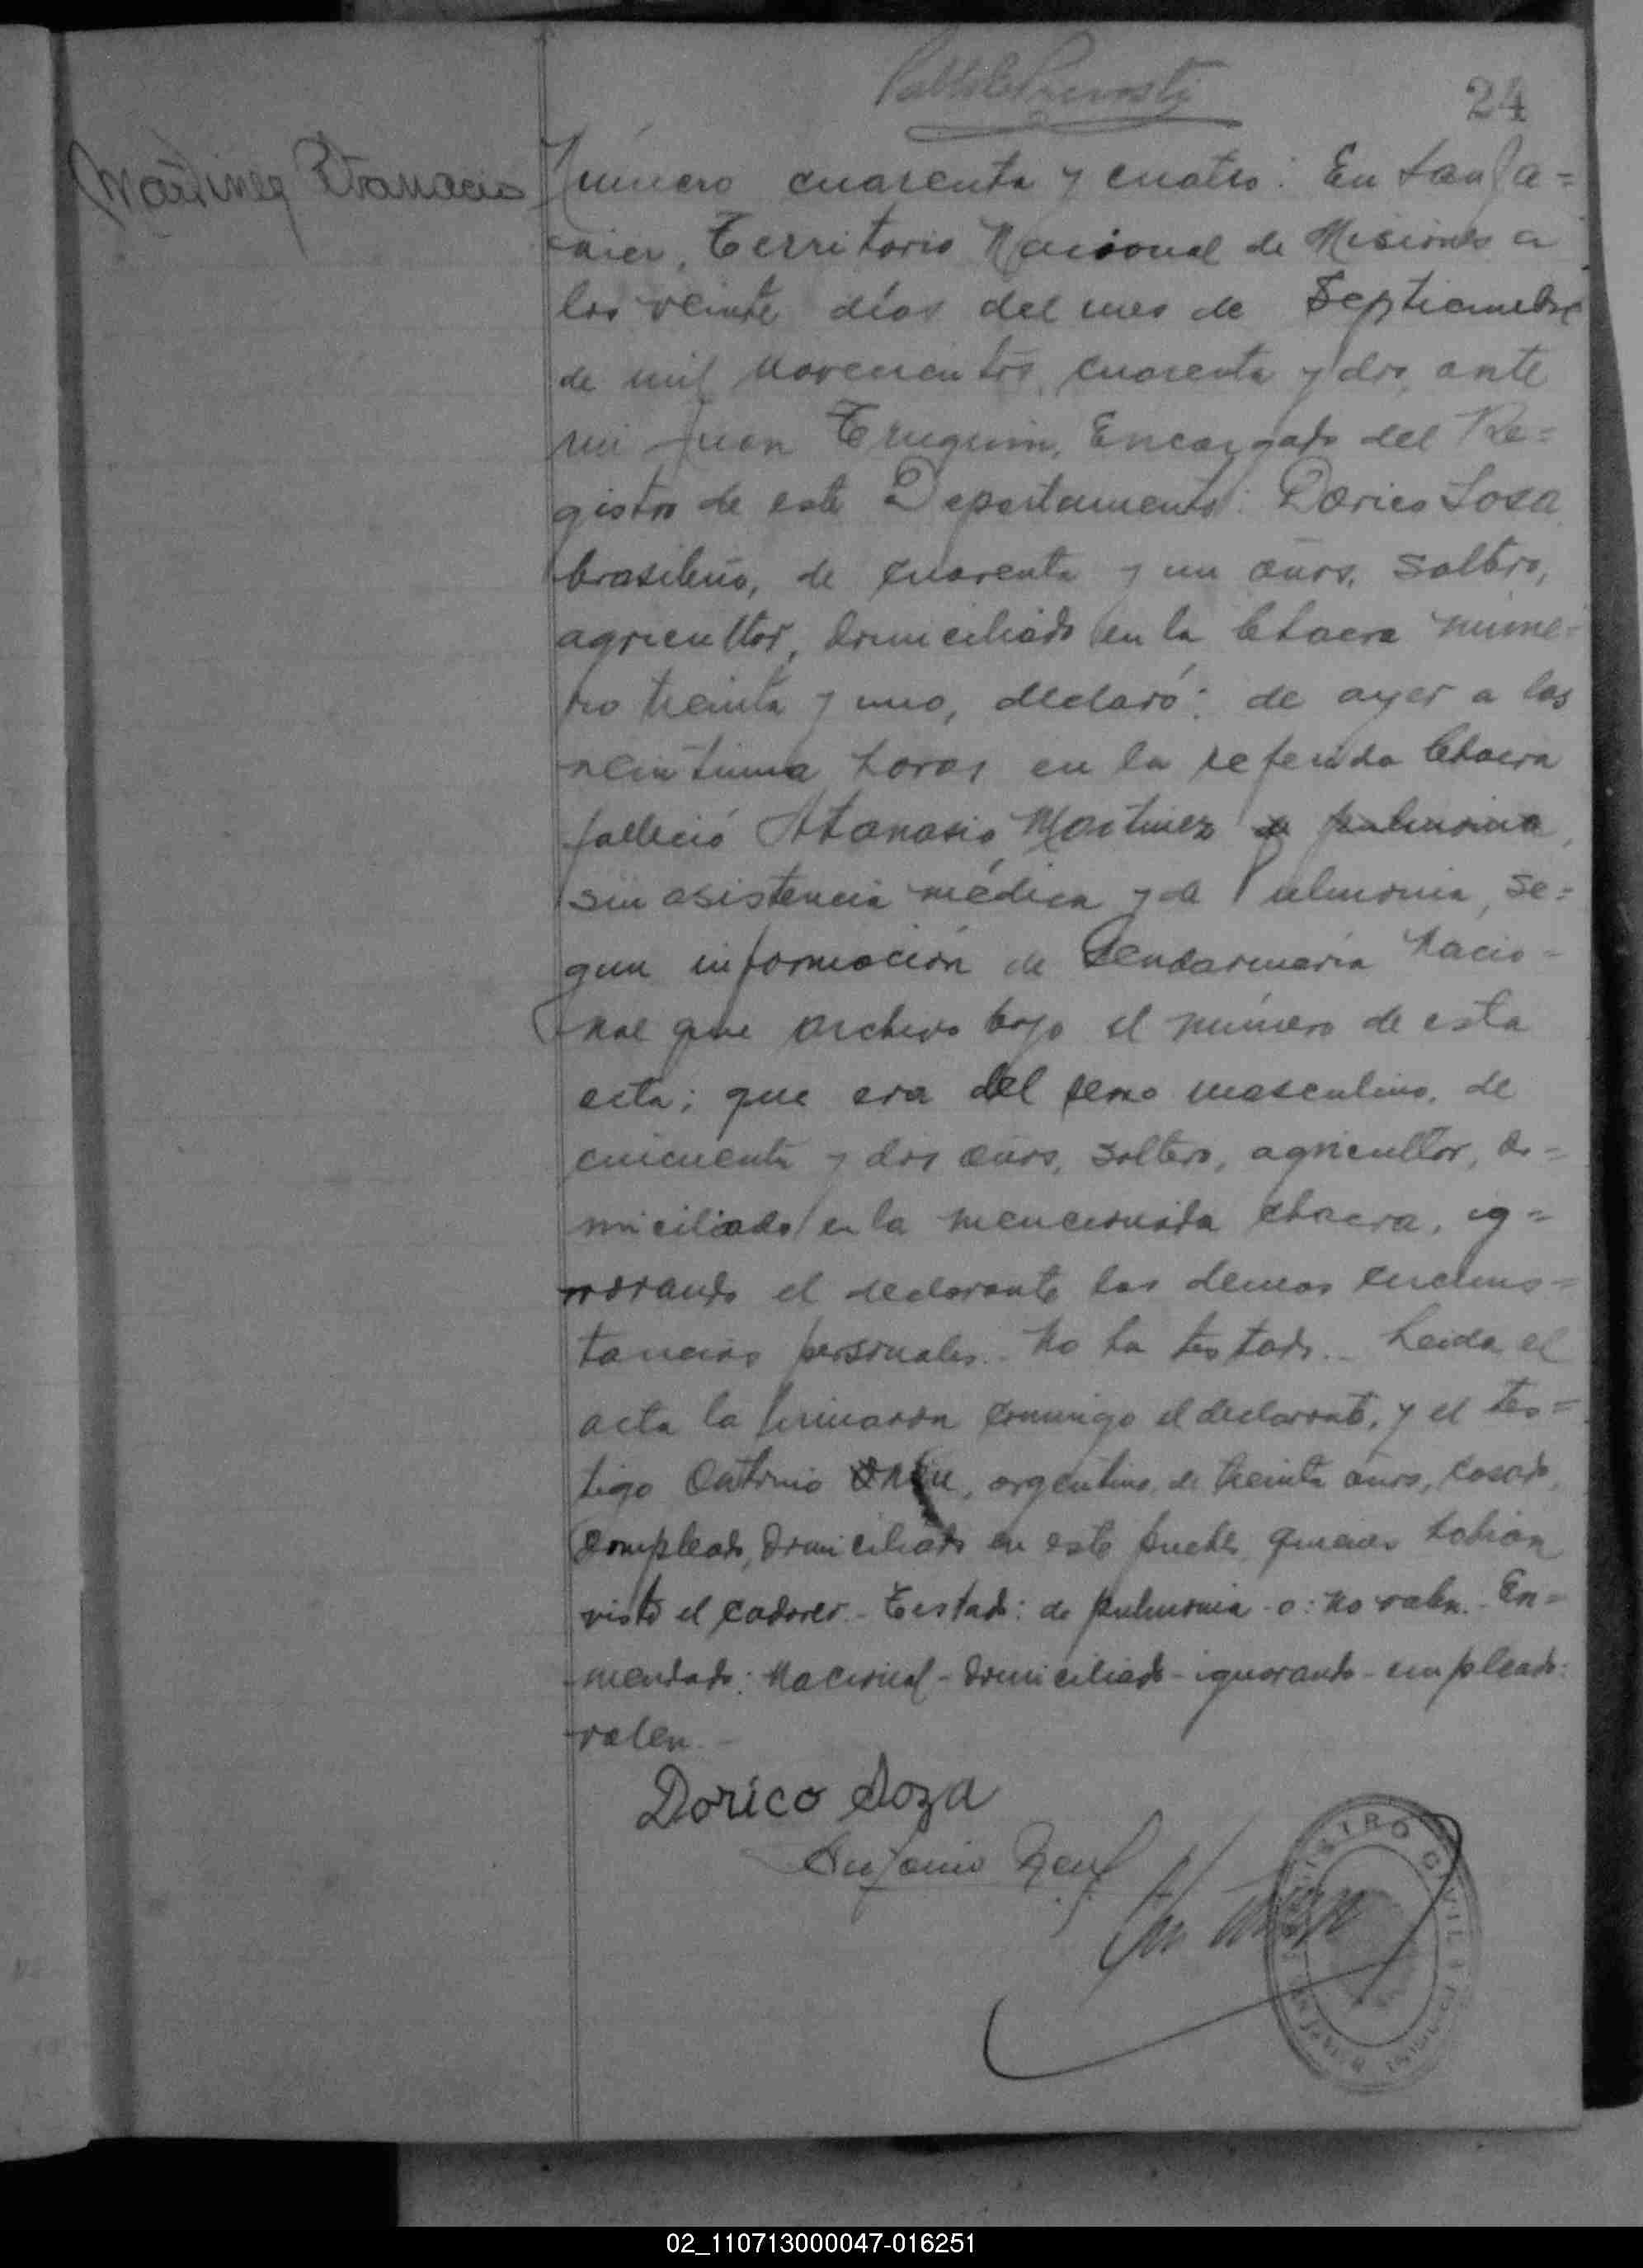 24
Martinez Atanacio
Número cuarenta y cuatro: En San Ja=
vier, Territorio Nacional de Misiones a
los veinte días del mes de Septiembre
de mil novecientos cuarenta y dos, ante
mi Juan Encargado del Re=
gistro de este Departamento: Dorico Soza
brasileño, de cuarenta y un años, soltero,
agricultor, domiciliado en la Chacra núme=
ro treinta y uno, declaró: de ayer a las
veintiuna horas en la referida Chacra
falleció Atanasio Martinez de pulmonia,
sin asistencia médica y de Pulmonia, se=
gun información de Gendarmería Nacio=
nal que archivo bajo el número de esta
acta; que era del sexo masculino, de
cincuenta y dos años, soltero, agricultor, do=
miciliado en la mencionada chacra, ig=
norando el declarante las demas circuns=
tancias personales.- No ha testado.- Leida el
acta la firmaron conmigo el declarante, y el tes=
tigo Antonio argentino, de treinta años, casado,
empleado, domiciliado en este pueblo quienes habian
visto el cadaver.- Testado: de pulmonia - o: no valen.- En=
mendado: Nacional - domiciliado - ignorando - empleado:
valen.-
Dorico Soza
Antonio
REGISTRO CIVIL